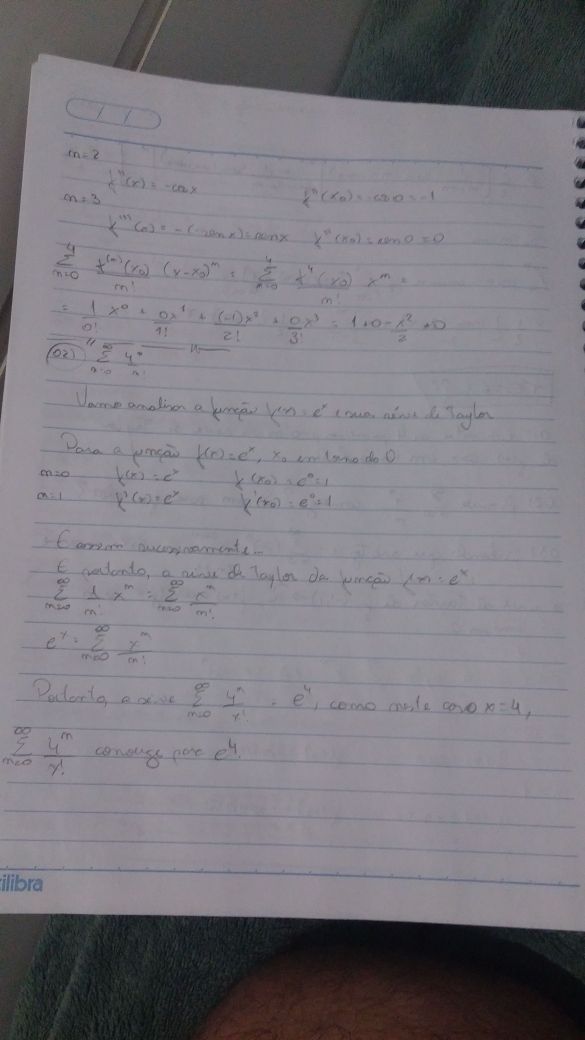 / /
n=2
f''(x) = -cosx f''(x0) = -cos0 = -1
n=3
f'''(0) = -(-senx) = senx f'''(x0) = sen0 = 0
4 Σ n=0 f(n)(x0) (x-x0)^n / n! = 4 Σ n=0 f^4(x0) / n! x^n =
= 1/0! x^0 + 0x^1/1! + (-1)x^2/2! + 0x^3/3! = 1+0-x^2/2+0
02) ∞ Σ n=0 4^n/n!
Vamos analisar a função f(x) = e^x e sua série de Taylor
Para a função f(x) = e^x, x0 em torno do 0
n=0 f(x) = e^x f(x0) = e^0 = 1
n=1 f'(x) = e^x f'(x0) = e^0 = 1
E assim sucessivamente...
E portanto, a série de Taylor da função f(x) = e^x
∞ Σ n=0 1/n! x^n = ∞ Σ n=0 x^n/n!
e^x = ∞ Σ n=0 x^n/n!
Portanto, a série ∞ Σ n=0 4^n/x! = e^4, como neste caso x=4,
∞ Σ n=0 4^n/x! converge para e^4.
ilibra